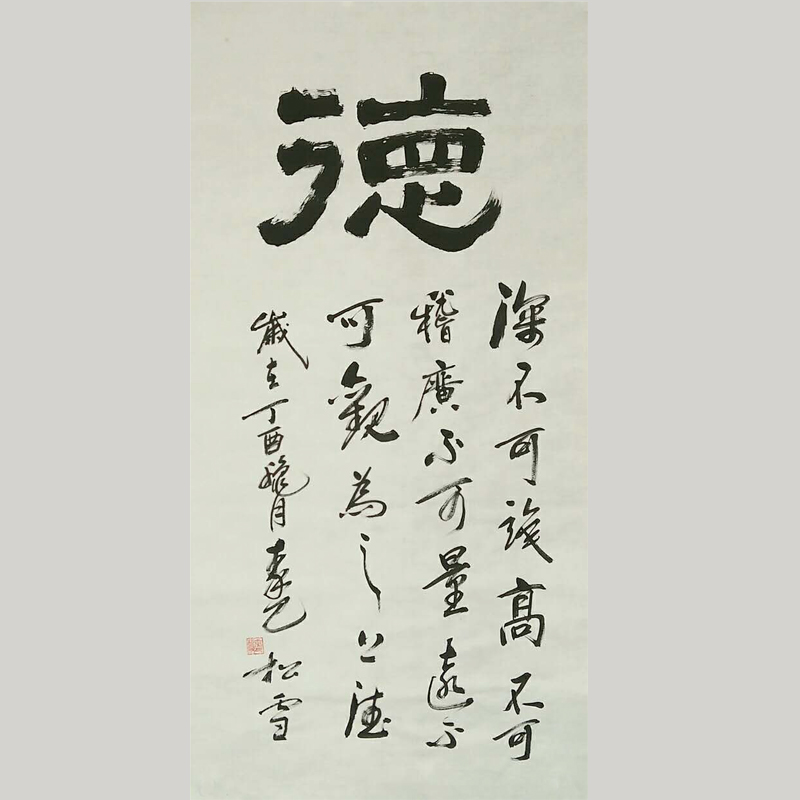 德
深不可識高不可
稽廣不可量遠不
可觀為之上德
歲在丁酉臘月 松雪